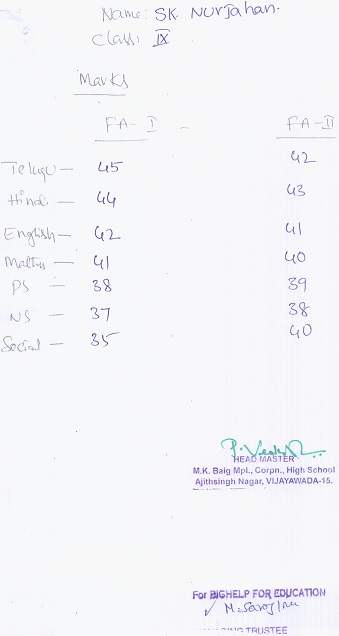 Name: SK. Nurjahan.
Class: IX
Marks
FA-I - FA-II
Telugu - 45 42
Hindi - 44 43
English - 42 41
Maths - 41 40
PS - 38 39
NS - 37 38
Social - 35 40
HEAD MASTER
M.K. Baig Mpl., Corpn., High School
Ajithsingh Nagar, VIJAYAWADA-15.
For BIGHELP FOR EDUCATION
M. Sarojini
TRUSTEE